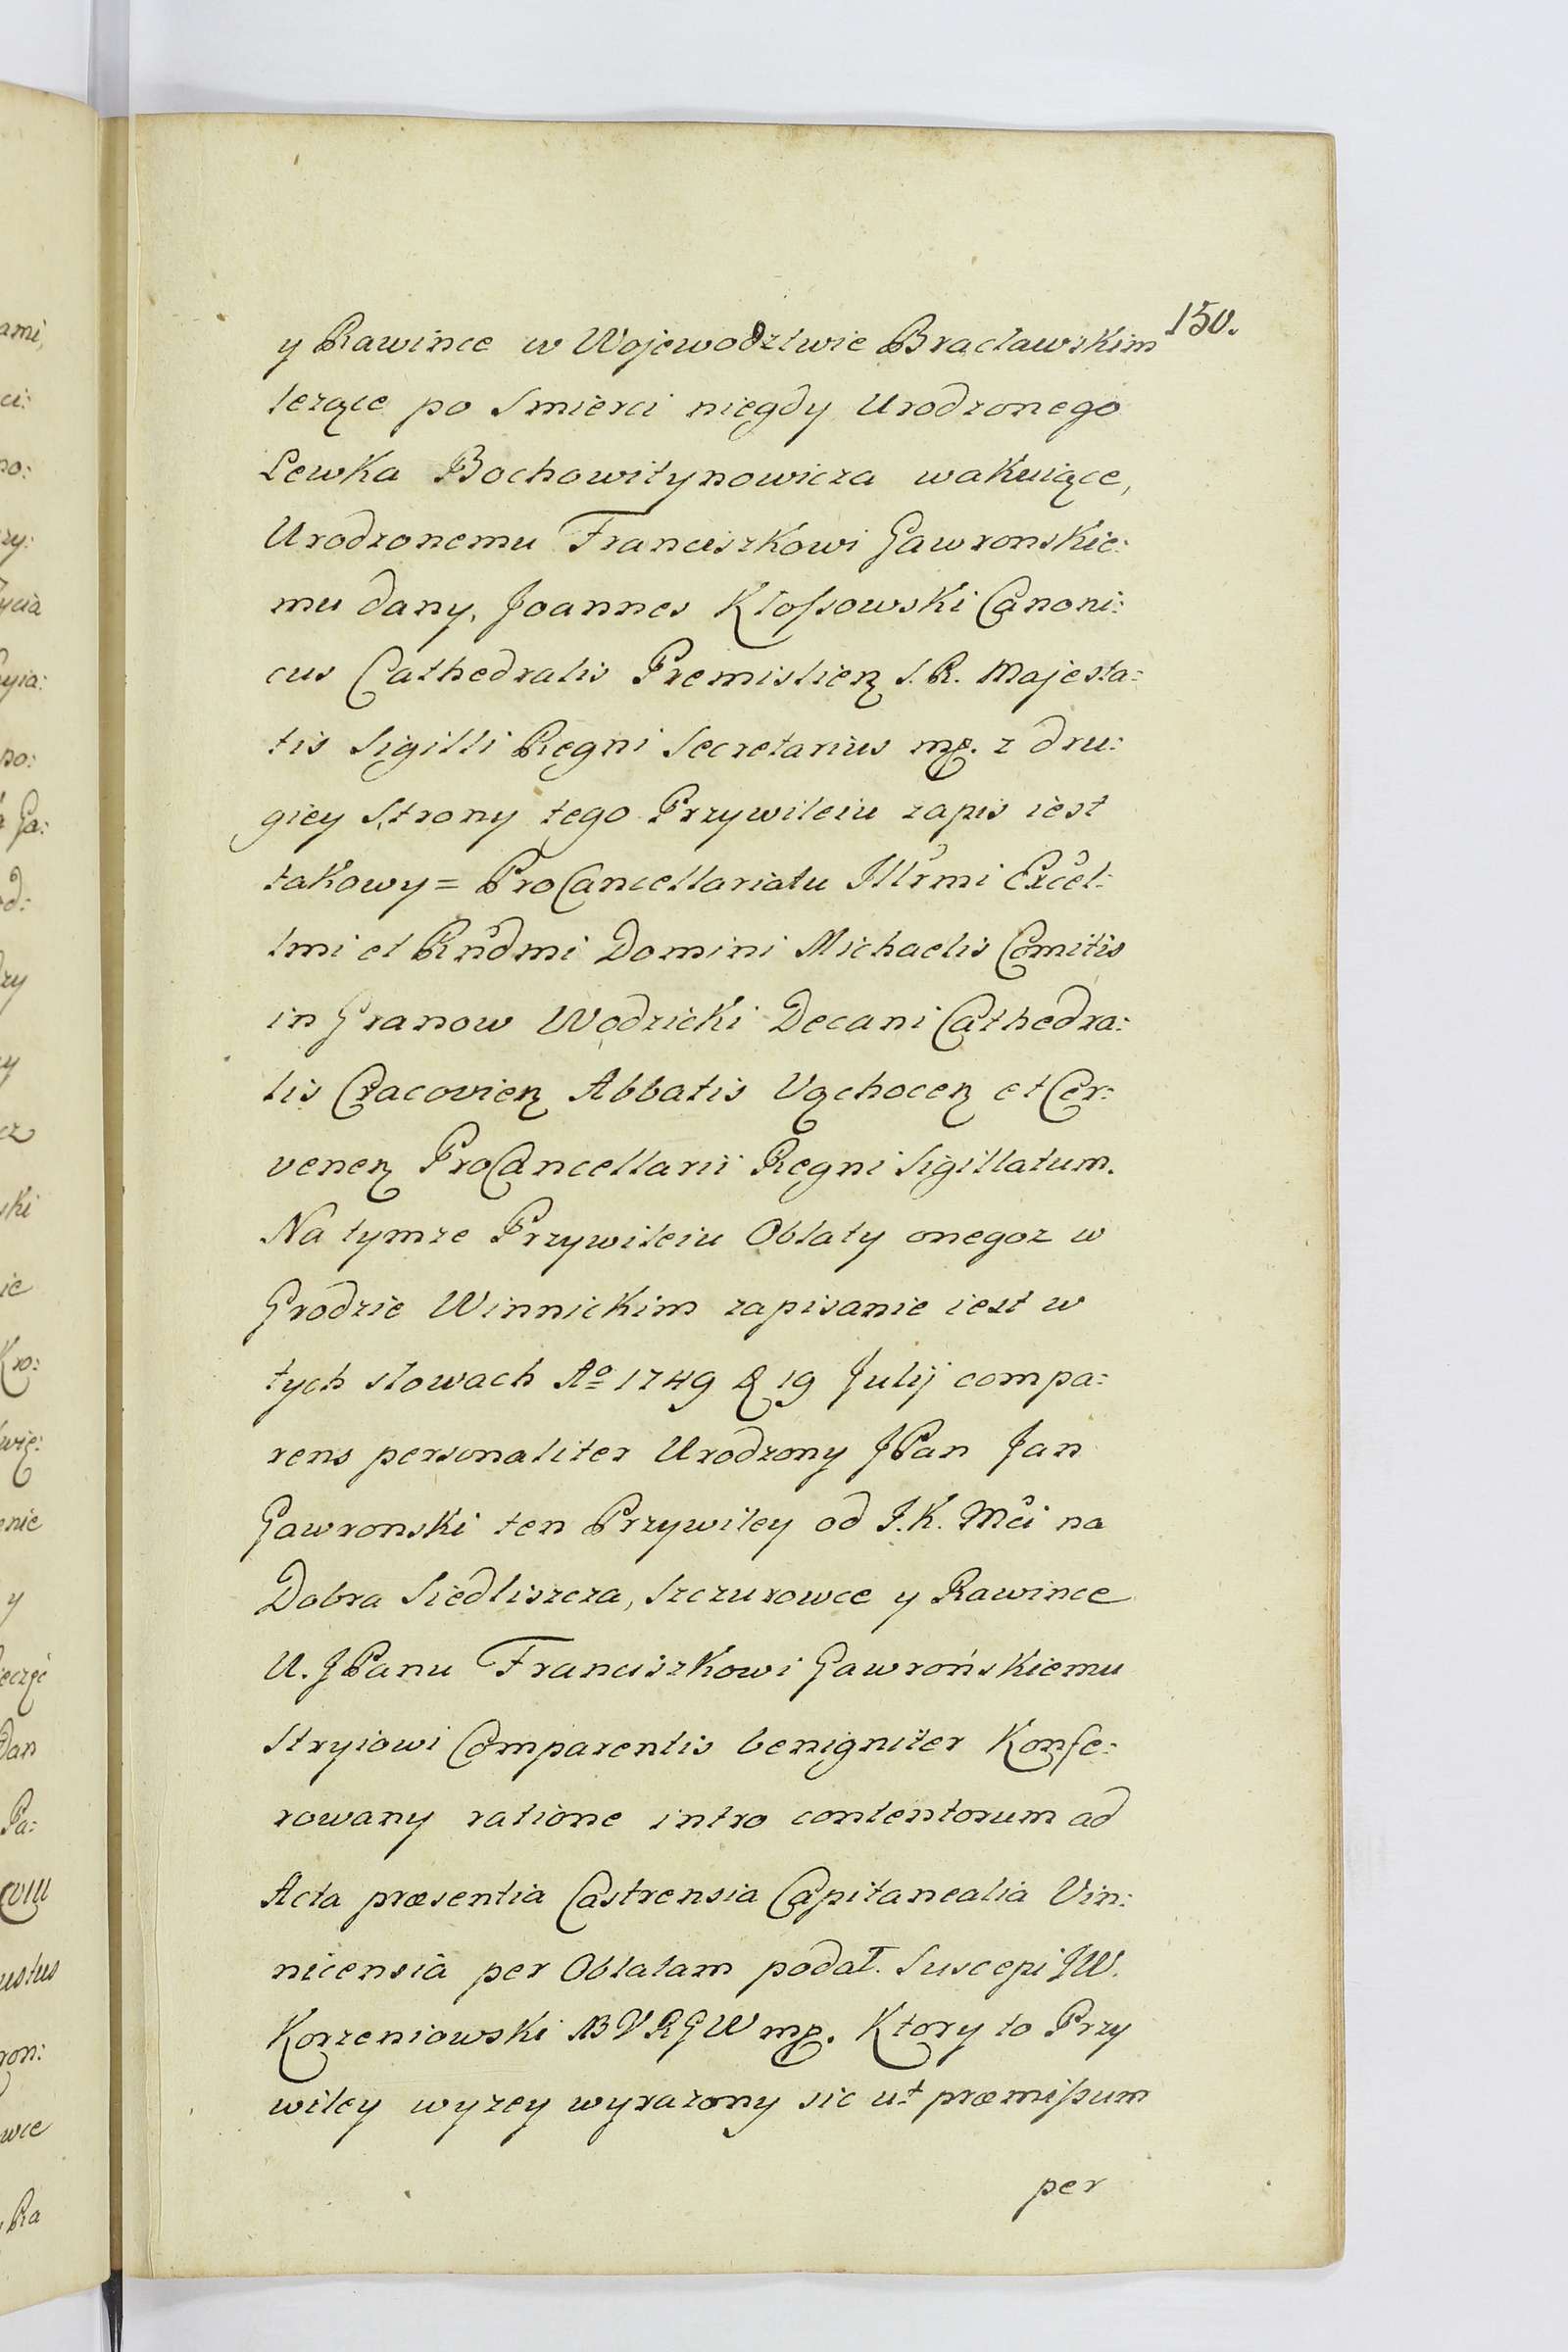 150.
y Rawince w Wojewodztwie Bracławskim
lezące po Smierci niegdy Urodzonego
Lewka Bochowitynowicza wakuiące,
Urodzonemu Franciszkowi Gawronskie:
mu dany, Joannes Kłossowski Canoni:
cus Cathedralis Premislien S. R. Majesta:
tis Sigilli Regni Secretarius mp. z dru:
giey Strony tego Przywileiu zapis iest
takowy = ProCancellariatu Illrmi Excel:
lmi et Rndmi Domini Michaelis Comitis
in Granow Wodzicki Decani Cathedra:
lis Cracovien Abbatis Vąchocen et Cer:
venen ProCancellarii Regni Sigillatum.
Na tymze Przywileiu Oblaty onegoz w
Grodzie Winnickim zapisanie iest w
tych słowach Ao 1749 D 19 Julij compa:
rens personaliter Urodzony JPan Jan
Gawronski ten Przywiley od J. K. Mci na
Dobra Siedliszcza, Szczurowce y Rawince
U. JPanu Franciszkowi Gawrońskiemu
Stryiowi Comparentis benigniter Konfe:
rowany ratione intro contentorum ad
Acta præsentia Castrensia Capitanealia Vin:
nicensia per Oblatam podał. Suscepi JW.
Korzeniowski NBVRGW mp. Ktory to Przy
wiley wyzey wyrazony sic ut præmissum
per